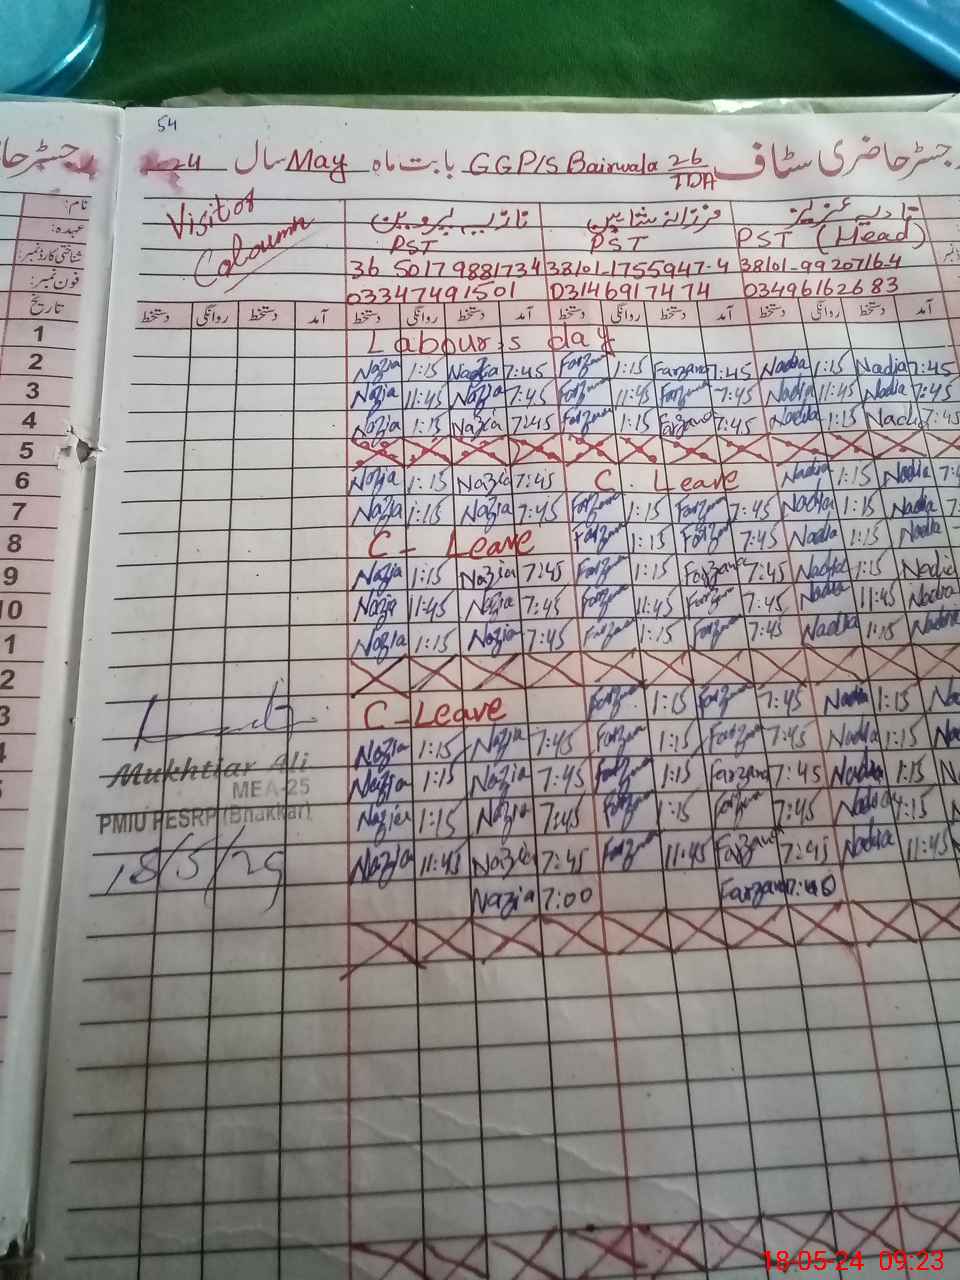 54
رجسٹر حاضری سٹاف GGP/S Bairwala 26/TDA بابت ماہ May سال 24
نام:
عہدہ:
شناختی کارڈ نمبر:
فون نمبر:
تاریخ
Visitor Coloumn
نازیہ پروین فرزانہ شاہین نادیہ عزیز
PST PST PST (Head)
36 5017 9881734 38101-1755947-4 38101-9920716-4
03347491501 03146917474 03496162683
دستخط روانگی دستخط آمد دستخط روانگی دستخط آمد دستخط روانگی دستخط آمد دستخط روانگی دستخط آمد
1 Labour,s day
2 Nazia 1:15 Nazia 7:45 Farzana 1:15 Farzana 7:45 Nadia 1:15 Nadia 7:45
3 Nazia 11:45 Nazia 7:45 Farzana 11:45 Farzana 7:45 Nadia 11:45 Nadia 7:45
4 Nazia 1:15 Nazia 7:45 Farzana 1:15 Farzana 7:45 Nadia 1:15 Nadia 7:45
5
6 Nazia 1:15 Nazia 7:45 C. Leave Nadia 1:15 Nadia 7:4
7 Nazia 1:15 Nazia 7:45 Farzana 1:15 Farzana 7:45 Nadia 1:15 Nadia 7:
8 C- Leave Farzana 1:15 Farzana 7:45 Nadia 1:15 Nadia
9 Nazia 1:15 Nazia 7:45 Farzana 1:15 Farzana 7:45 Nadia 1:15 Nadia
10 Nazia 11:45 Nazia 7:45 Farzana 11:45 Farzana 7:45 Nadia 11:45 Nadia
1 Nazia 1:15 Nazia 7:45 Farzana 1:15 Farzana 7:45 Nadia 1:15 Nadia
2
3 C-Leave Farzana 1:15 Farzana 7:45 Nadia 1:15 Na
4 Nazia 1:15 Nazia 7:45 Farzana 1:15 Farzana 7:45 Nadia 1:15 Na
Nazia 1:15 Nazia 7:45 Farzana 1:15 Farzana 7:45 Nadia 1:15 N
Nazia 1:15 Nazia 7:45 Farzana 1:15 Farzana 7:45 Nadia 1:15
Nazia 11:45 Nazia 7:45 Farzana 11:45 Farzana 7:45 Nadia 11:45
Nazia 7:00 Farzana 7:40
Mukhtiar Ali
MEA-25
PMIU PESRP (Bhakkar)
18/5/24
18-05-24 09:23